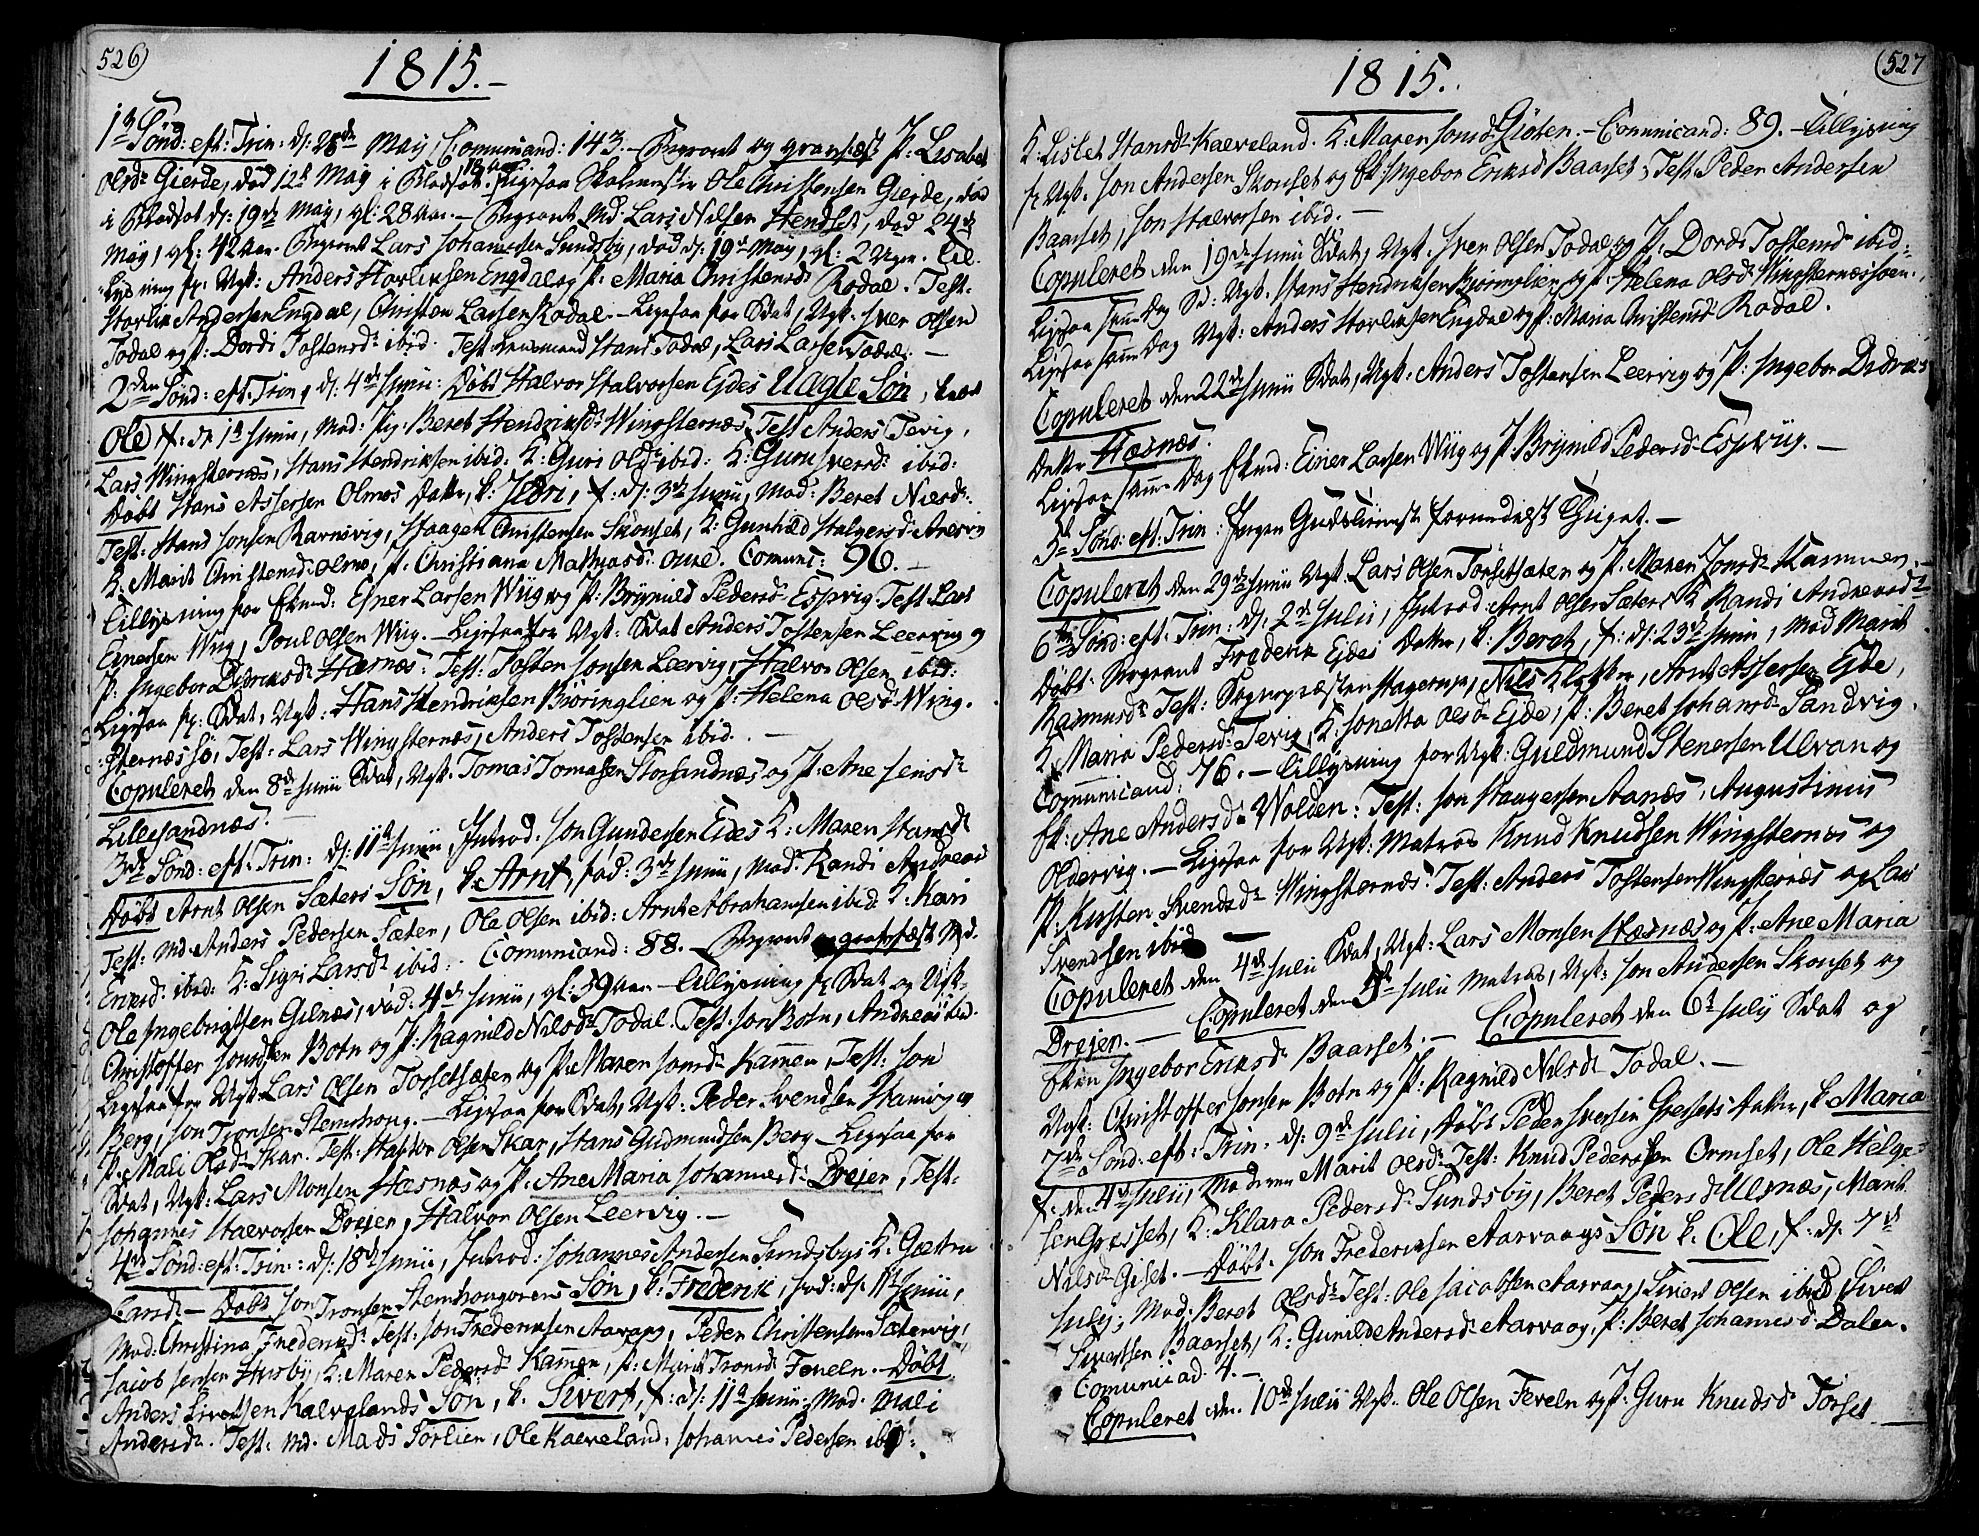 526)
1815.-
1ste Sönd: eft: Trin: d: 28de May, Communicand: 143.- Begravet og gravfæst P. Lisabet
Olsdr Gierde, död 12te May i Bladsot. Ligesaa Skolemester Ole Christensen Gierde, död
i Blodsot d: 19de May, gl: 28 Aar.- Begravet Md Lars Nilsen Hendset, död 24de
May, gl: 42 Aar. Begravet Lars Johannesen Sundsby, död d: 19de May, gl: 2 Uger. Til-
lysning for Ugk: Anders Horlinsen Engdal og P: Maria Christensdr Rodal. Test:
Horlin Andersen Engdal, Christen Larsen Rodal.- Ligesaa for Sdat, Ugk: Sver Olsen
Todal og P: Dordi Tostensdr ibid. Test: Lensmand Hans Todal, Lars Larsen Todal.-
2den Sönd: eft: Trin, d: 4de Junii: Döbt Halvor Halvorsen Ejdes Uægte Sön, kaldt
Ole f: d: 1te Junii, Mod: Pig: Beret Hendriksdr Wingsternæs. Test: Anders Tevig,
Lars Wingsternæs, Hans Hendriksen ibid: K: Guri Olsdr ibid: K: Guru Sversdr ibid:
Döbt Hans Assersen Olmos Datter, k: Idri, f: d: 3de Junii, Mod: Beret Nilsdr:
Test: Hans Jonsen Ravnsvig, Haagen Christensen Skonset, K: Gunhild Halgersdr Aresvig
K: Marit Christensdr Olmo, P. Christiana Mathiasdr Oure. Comuni: 96.-
Tillysning for Ekmd: Einer Larsen Wiig og P: Brÿnnild Pedersdr Espvig. Test: Lars
Einersen Wiig, Poul Olsen Wiig.- Ligesaa for Ugk: Sdat Anders Tostensen Leervig og
P: Ingebor Didriksdr Hæsnæs: Test: Tosten Jonsen Leervig, Halvor Olsen ibid:
Ligesaa for Sdat, Ugk: Hans Hendriksen Björinglien og P: Helena Olsdr Wing-
sternæssö, Test: Lars Wingsternæs, Anders Tostensen ibid.-
Copuleret den 8de Junii Sdat, Ugk: Tomas Tomasen Storsandnæs og P. Ane Jensdr
Lillesandnæs.-
3die Sönd: eft: Trin: d: 11te Junii, Introd: Jon Gundersen Eides K: Maren Hansdr
Döbt Arnt Olsen Sæters Sön, k: Arnt, föd: 3de Junii, Mod: Randi Andreasdr
Test: Md Anders Pedersen Sæter, Ole Olsen ibid: Arnt Abrahamsen ibid: K: Kari
Eriksdr ibid: K: Sigri Larsdr ibid: Comunicand: 88. Begravet og gravfæst Md.
Ole Ingebrigtsen Gilnæs, död: 4de Junii, gl: 59 Aar.- Tillysning for Sdat og Ugk:
Christoffer Jonsen Botn og P: Ragnild Nilsdr Todal. Test: Jon Botn, Andreas ibid.
Ligesaa for Ugk: Lars Olsen Torsetsæter og P: Maren Jonsdr Kammen, Test: Jon
Berg, Jon Tronsen Stemshoug.- Ligesaa for Sdat, Ugk: Peder Svendsen Hamvig og
P: Mali Olsdr Skar. Test: Halvor Olsen Skar, Hans Gudmundsen Berg.- Ligesaa for
Sdat, Ugk: Lars Monsen Hæsnæs og P: Ane Maria Johannesdr Drejer, Test:
Johannes Halvorsen Drejer, Halvor Olsen Leervig.-
4de Sönd: eft: Trin: d: 18de Junii, Introd: Johannes Andersen Sundsbys K: Gjætru
Larsdr.- Döbt Jon Tronsen Stemshougörens Sön, k: Frederik, föd: d: 11te Junii,
Mod: Christina Frederiksdr Test: Jon Frederiksen Aarvaag, Peder Christensen Sætervig,
Jacob Jensen Husby, K: Maren Pedersdr Kammen, P: Marit Tronsdr Feveln.- Döbt
Anders Sivertsen Kalvelands Sön, k. Sivert, f: d: 11te Junii, Mod. Mali
Andersdr. Test: Md. Mads Torlien, Ole Kaleveland, Johannes Pedersen ibid:
(527
1815.
K: Lisbet Hansdr Kaeveland. K: Maren Jonsdr Giöten.- Comunicand: 89.- Tillysning
for Ugk. Jon Andersen Skonset og Ek: Ingebor Eriksdr Baarset, Test: Peder Andersen
Baarset, Jon Halvorsen ibid.-
Copuleret den 19de Junii Sdat, Ugk: Sver Olsen Todal og P. Dordi Tostensdr ibid:
Ligesaa samme Dag Sd: Ugk. Hans Hendriksen Björinglien og P: Helena Olsdr Wingsternæssöen.
Ligesaa samme Dag Ugk: Anders Horlinsen Engdal og P: Maria Christensdr Rodal.
Copuleret den 22de Junii Sdat, Ugk: Anders Tostensen Leervig og P. Ingebor Didriks
Datter Hæsnæs.
Ligesaa samme Dag Ekmd: Einer Larsen Wiig og P: Brÿnnild Pedersdr Espviig.-
5te Sönd: eft: Trin: Ingen Gudstieneste formedelst Thiget.-
Copuleret den 29de Junii Ugk. Lars Olsen Torsetsæter og P. Maren Jonsdr Kammen.-
6te Sönd: eft: Trin: d: 2de Julii, Introd: Arnt Olsen Sæters K. Randi Andreasdr
Döbt Sergeant Frederik Ejdes Datter, k: Berat, f: d: 23de Junii, Mod Marit
Rasmusdr Test: Sognepræsten Hagerup, Nils Klokker, Arnt Assersen Ejde,
K: Maria Pedersdr Tevig, K: Jonetta Olsdr Ejde, P: Beret Johansdr Sandvig.
Comunicand: 76.- Tillysning for Ugk: Guldmund Stenersen Ulvan og
Ek: Ane Andersdr Wolden: Test: Jon Haagensen Aanæs, Augustinus
Oldervig.- Ligesaa for Ugk: Matros Knud Knudsen Wingsternæs og
P. Kirsten Svendsdr Wingsternæs. Test: Anders Tostensen Wingsternæs og Lars
Svendsen ibid.-
Copuleret den 4de Julii Sdat, Ugk: Lars Monsen Hæsnæs og P. Ane Maria
Drejer.- Copuleret den 5te Julii Matros, Ugk: Jon Andersen Skonset og
Eken Ingebor Eriksdr Baarset.- Copuleret den 6te July Sdat og
Ugk: Christoffer Jonsen Botn og P. Ragnild Nilsdr Todal.-
7de Sönd: eft: Trin: d: 9de Julii, Döbt Peder Sversen Gresets Datter, k. Maria
f: den 4de Julii, Moderen Marit Olsdr Test: Knud Pedersen Ormset, Ole Helge-
sen Gresset, K: Klara Pedersdr Sundsby, Beret Pedersdr Ulsnæs, Marit
Nilsdr Giset.- Döbt. Jon Frederiksen Aarvaags Sön k. Ole, f: d: 7de
July, Mod. Beret Olsdr Test: Ole Jacobsen Aarvaag, Sivert Olsen ibid, Sivert
Sivertsen Baarset, K: Gunild Andersdr Aarvaag, P: Beret Johannesdr Dalen.
Comunicad: 4.-
Copuleret den 10de Julii Ugk. Ole Olsen Feveln og P: Guru Knudsdr Torset.-